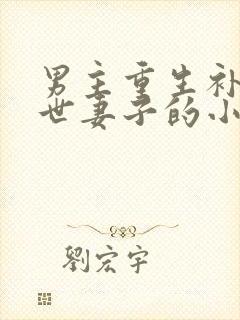 男主重生补
世妻子的小
劉宏宇